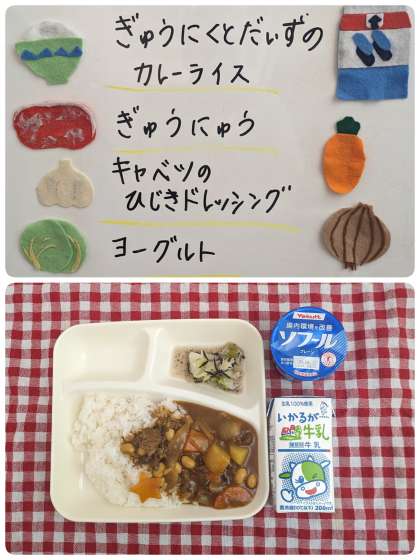 ぎゅうにくとだいずの
カレーライス
ぎゅうにゅう
キャベツの
ひじきドレッシング
ヨーグルト
Yakult
腸内環境を改善
ソフール
プレーン
生乳100%使用
いかるが
牛乳
200ml